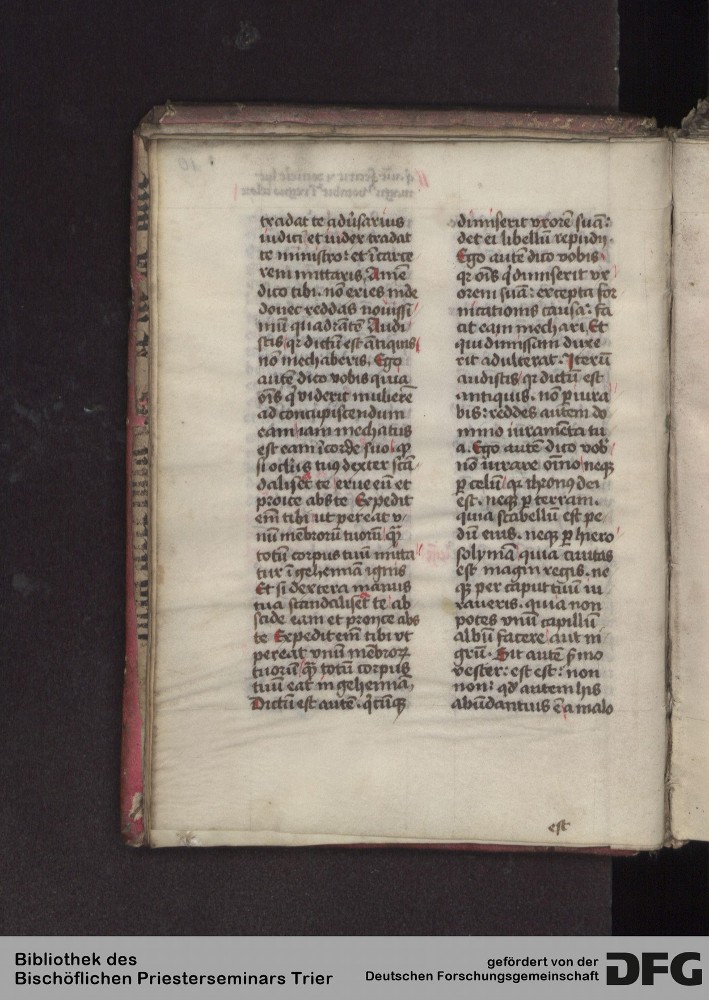 tradat te adũsarius
iudici et iudex tradat
te ministro: et ĩ carce
rem mittaris, Amẽ
dico tibi. nõ exies inde
donec reddas nouissi
mũ quadrãtẽ Audi
stis qꝛ dictũ est ãtiquis
nõ mechaberis. Ego
autẽ dico vobis quia
oĩs q̇ viderit mulierẽ
ad concupiscendum
eam iam mechatus
est eam ĩ corde suo. qͥ
si oclũs tuꝯ dexter scã
daliset te erue eũ et
proice abs te Expedit
em̃ tibi ut pereat v
nũ mẽbrorũ tuorũ qͣ̃
totũ corpus tuũ mitta
tur ĩ gehennã ignis
Et si dextera manus
tua scandaliset te ab
scide eam et proice abs
te Expedit em̃ tibi vt
pereat vnũ mẽbroꝝ
tuorũ qͣ̃ totũ corpus
tuũ eat in gehennã,
Dictũ est autẽ. q̇cũqꝫ
dimiserit vxorẽ suã:
det ei libellũ repudij
Ego autẽ dico vobis
qꝛ oĩs q̇ dimiserit vx
orem suã: excepta for
nicationis causa: fa
cit eam mechari, Et
qui dimissam duxe
rit adulterat. Iterũ
audistis qꝛ dictũ est
antiquis. nõ ꝑiura
bis: reddes autem do
mino iuramẽta tu
a. Ego autẽ dico vobꝭ
nõ iurare oĩno neqꝫ
ꝑ celũ qꝛ thronꝯ dei
est. neqꝫ ꝑ terram.
quia scabellũ est pe
dũ eius. neqꝫ ꝑ hiero
solymã quia ciuitas
est magni regis. ne
qꝫ per caput tuũ iu
raueris. quia non
potes vnũ capillũ
albũ facere aut ni
grũ. Sit autẽ ẜmo
vester: est est: non
non: qđ autem his
abũdantius ẽ a malo
est
Bibliothek des
Bischöflichen Priesterseminars Trier
gefördert von der
Deutschen Forschungsgemeinschaft
DFG